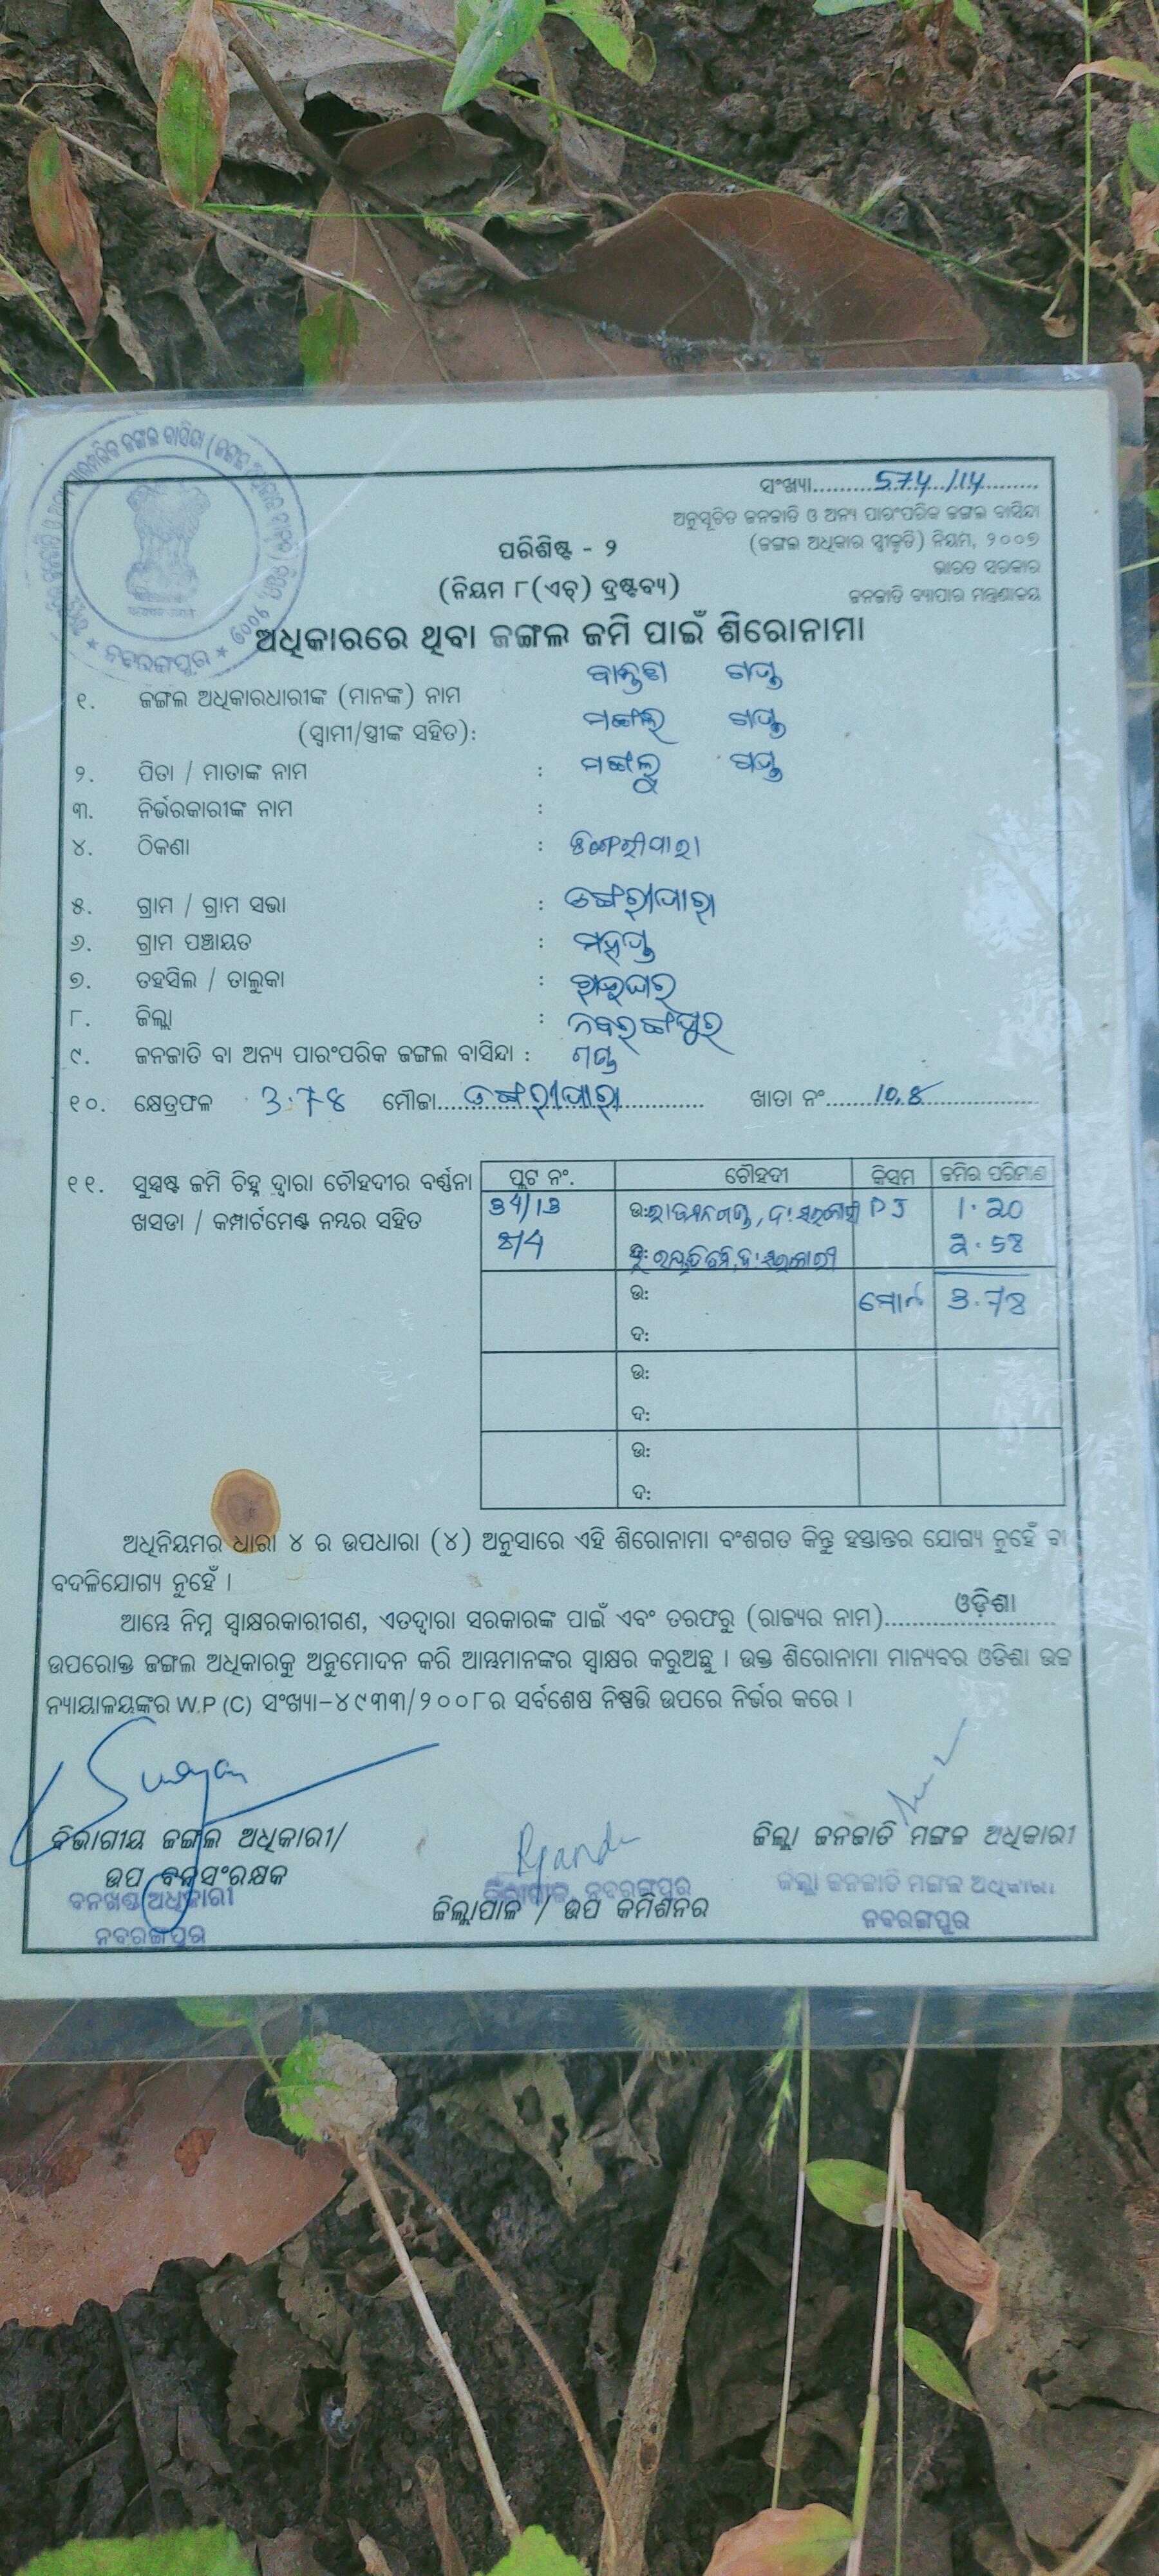 ସଂଖ୍ୟା.........574/14.............
ଅନୁସୂଚିତ ଜନଜାତି ଓ ଅନ୍ୟ ପାରଂପରିକ ଜଙ୍ଗଲ ବାସିନ୍ଦା
ପରିଶିଷ୍ଟ - ୨
(ଜଙ୍ଗଲ ଅଧିକାର ସ୍ୱୀକୃତି) ନିୟମ, ୨୦୦୭
ଭାରତ ସରକାର
(ନିୟମ ୮(ଏଚ୍) ଦ୍ରଷ୍ଟବ୍ୟ)
ଜନଜାତି ବ୍ୟାପାର ମନ୍ତ୍ରଣାଳୟ
ଅଧିକାରରେ ଥିବା ଜଙ୍ଗଲ ଜମି ପାଇଁ ଶିରୋନାମା
୧. ଜଙ୍ଗଲ ଅଧିକାରଧାରୀଙ୍କ (ମାନଙ୍କ) ନାମ
(ସ୍ୱାମୀ/ସ୍ତ୍ରୀଙ୍କ ସହିତ): ମଙ୍ଗଲ ଗଣ୍ଡ
୨. ପିତା / ମାତାଙ୍କ ନାମ : ମଙ୍ଗଲୁ ଗଣ୍ଡ
୩. ନିର୍ଭରକାରୀଙ୍କ ନାମ :
୪. ଠିକଣା :
୫. ଗ୍ରାମ / ଗ୍ରାମ ସଭା : ଡଙ୍ଗରୀପାରା
୬. ଗ୍ରାମ ପଞ୍ଚାୟତ :
୭. ତହସିଲ / ତାଲୁକା : ରାଇଘର
୮. ଜିଲ୍ଲା : ନବରଙ୍ଗପୁର
୯. ଜନଜାତି ବା ଅନ୍ୟ ପାରଂପରିକ ଜଙ୍ଗଲ ବାସିନ୍ଦା : ଗଣ୍ଡ
୧୦. କ୍ଷେତ୍ରଫଳ 3.78 ମୌଜା.... ଡଙ୍ଗରୀପାରା ............ ଖାତା ନଂ.......
୧୧. ସୁସ୍ପଷ୍ଟ ଜମି ଚିହ୍ନ ଦ୍ୱାରା ଚୌହଦୀର ବର୍ଣ୍ଣନା
ଖସଡା / କମ୍ପାର୍ଟମେଣ୍ଟ ନମ୍ବର ସହିତ
ପ୍ଲଟ ନଂ. ଚୌହଦୀ କିସମ ଜମିର ପରିମାଣ
34/13 ଉ: PJ 1.20
8/4 ଦ: 2.58
ଉ: ମୋଟ 3.78
ଦ:
ଉ:
ଦ:
ଉ:
ଦ:
ଅଧିନିୟମର ଧାରା ୪ ର ଉପଧାରା (୪) ଅନୁସାରେ ଏହି ଶିରୋନାମା ବଂଶଗତ କିନ୍ତୁ ହସ୍ତାନ୍ତର ଯୋଗ୍ୟ ନୁହେଁ ବା
ବଦଳିଯୋଗ୍ୟ ନୁହେଁ ।
ଆମ୍ଭେ ନିମ୍ନ ସ୍ୱାକ୍ଷରକାରୀଗଣ, ଏତଦ୍ୱାରା ସରକାରଙ୍କ ପାଇଁ ଏବଂ ତରଫରୁ (ରାଜ୍ୟର ନାମ)........ଓଡ଼ିଶା........
ଉପରୋକ୍ତ ଜଙ୍ଗଲ ଅଧିକାରକୁ ଅନୁମୋଦନ କରି ଆମ୍ଭମାନଙ୍କର ସ୍ୱାକ୍ଷର କରୁଅଛୁ । ଉକ୍ତ ଶିରୋନାମା ମାନ୍ୟବର ଓଡିଶା ଉଚ୍ଚ
ନ୍ୟାୟାଳୟଙ୍କର W.P (C) ସଂଖ୍ୟା-୪୯୩୩/୨୦୦୮ର ସର୍ବଶେଷ ନିଷ୍ପତ୍ତି ଉପରେ ନିର୍ଭର କରେ ।
ବିଭାଗୀୟ ଜଙ୍ଗଲ ଅଧିକାରୀ/
ଉପ ବନସଂରକ୍ଷକ
ବନଖଣ୍ଡ ଅଧିକାରୀ
ନବରଙ୍ଗପୁର
ଜିଲ୍ଲାପାଳ, ନବରଙ୍ଗପୁର
ଜିଲ୍ଲାପାଳ / ଉପ କମିଶନର
ଜିଲ୍ଲା ଜନଜାତି ମଙ୍ଗଳ ଅଧିକାରୀ
ଜିଲ୍ଲା ଜନଜାତି ମଙ୍ଗଳ ଅଧିକାରୀ
ନବରଙ୍ଗପୁର